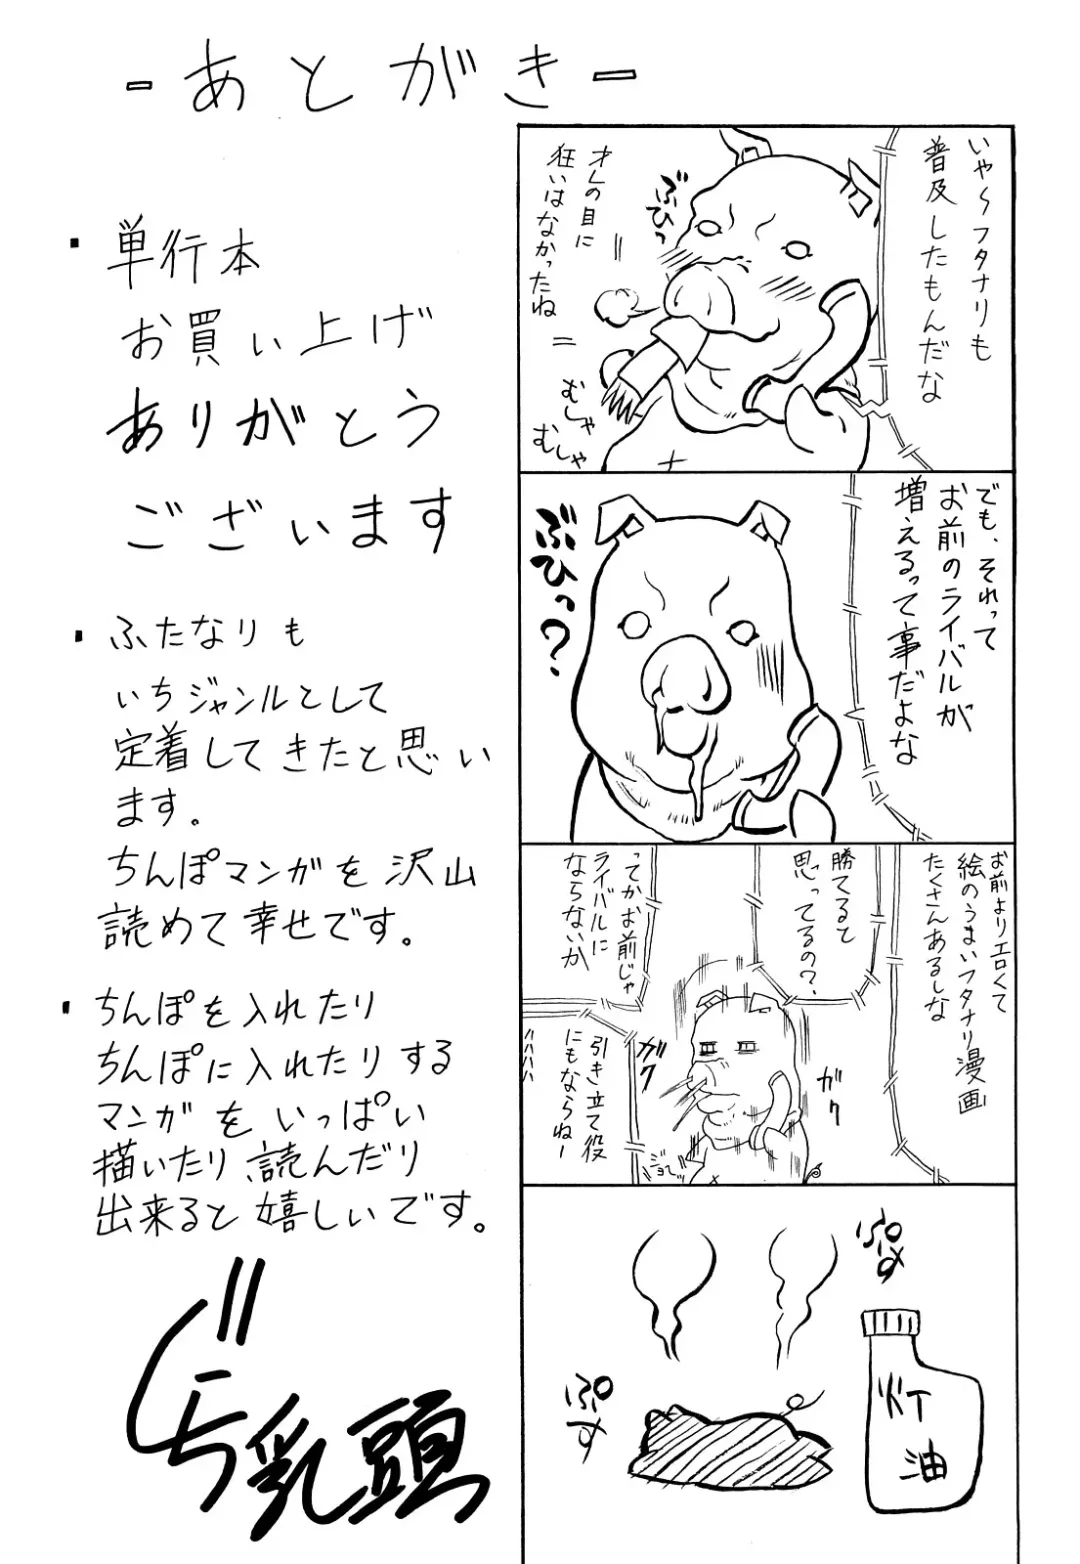 -あとがき-
・単行本
お買い上げ
ありがとう
ございます
・ふたなりも
いちジャンルとして
定着してきたと思い
ます。
ちんぽマンガを沢山
読めて幸せです。
・ちんぽを入れたり
ちんぽに入れたりする
マンガをいっぱい
描いたり、読んだり
出来ると嬉しいです。
乳頭
いや〜フタナリも
普及したもんだな
ぶひっ
オレの目に
狂いはなかったね
むしゃ
むしゃ
でも、それって
お前のライバルが
増えるって事だよな
ぶひっ?
お前よりエロくて
絵のうまいフタナリ漫画
たくさんあるしな
勝てると
思ってるの?
ってかお前じゃ
ライバルに
ならないか
引き立て役
にもならねー
ハハハハハ
ガク
ガク
ぷす
ぷす
灯
油